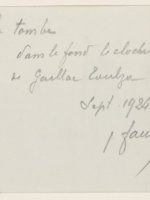 tombe
dans le fond le clocher
de Gaillac Toulza
Sept. 1924